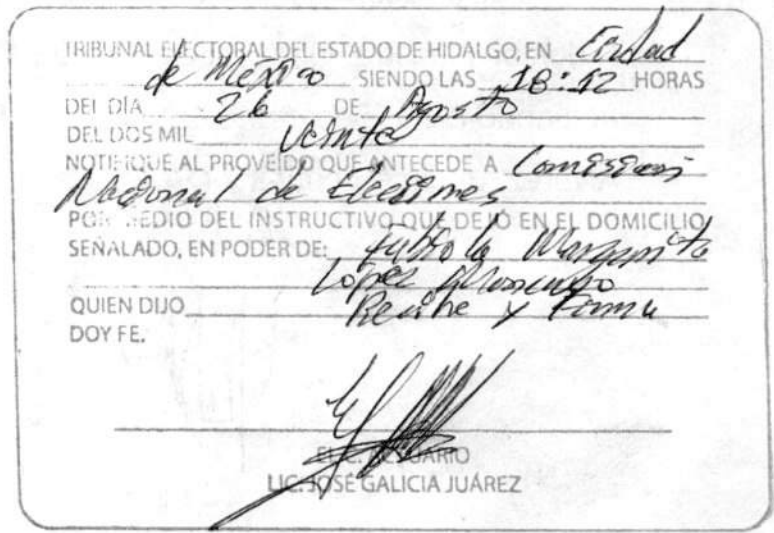 TRIBUNAL ELECTORAL DEL ESTADO DE HIDALGO, EN Ciudad
de México SIENDO LAS 18:12 HORAS
DEL DÍA 26 DE Agosto
DEL DOS MIL veinte
NOTIFIQUE AL PROVEÍDO QUE ANTECEDE A Comision
Nacional de Elecciones
POR MEDIO DEL INSTRUCTIVO QUE DEJÓ EN EL DOMICILIO
SEÑALADO, EN PODER DE: Fabiola Margarita
López
QUIEN DIJO Recibe y Firma
DOY FE.
EL C. ACTUARIO
LIC. JOSÉ GALICIA JUÁREZ